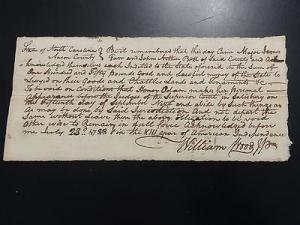 State of North Carolina } Be it remembered that this day Came Major James
County } and John of Said County and Ac-
knowledged themselves each Indebted to the State aforesaid in the Sum of
One Hundred and Fifty Pounds Good and Lawful money of the State to
be Levied on their Goods and Chattles Lands and Tenements &c
To be void on Condition that Henry Odam makes his Personal
Appearance before the Justices of the Superior Court of Salisbury on
the fifteenth day of September Next and abide by Such things as
as may be done by Said and Not depart the
Same without Leave then the above Obligation to be void
Other wise to Remain in full force Acknowledged before
me July 23d 1788 & in the XIII year of American Independence
William Wood JP